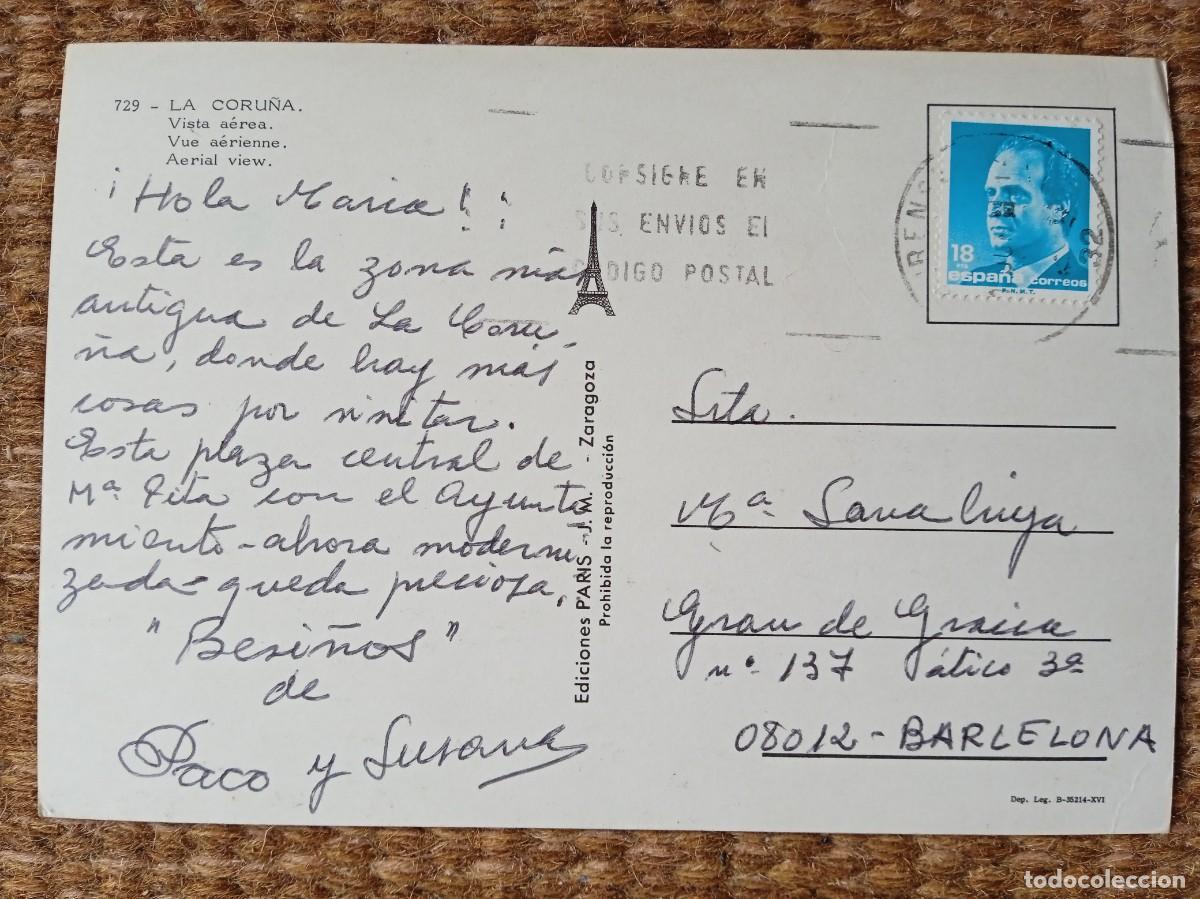 729 - LA CORUÑA.
Vista aérea.
Vue aérienne.
Aerial view.
¡Hola Maria!
Esta es la zona más
antigua de La Coru-
ña, donde hay más
cosas por visitar.
Esta plaza central de
Mª Pita con el Ayunta
miento-ahora moderni
zada-queda preciosa.
"Besiños"
de
Paco y Susana
Ediciones PARIS -J.M. - Zaragoza
Prohibida la reproducción
CONSIGNE EN
SUS ENVIOS El
CODIGO POSTAL
32
18
PTS
españa correos
F.N.M.T.
Srta.
Mª
Gran de Gracia
nº 137 ático 3ª
08012-BARLELONA
Dep. Leg. B-35214-XVI
todocoleccion